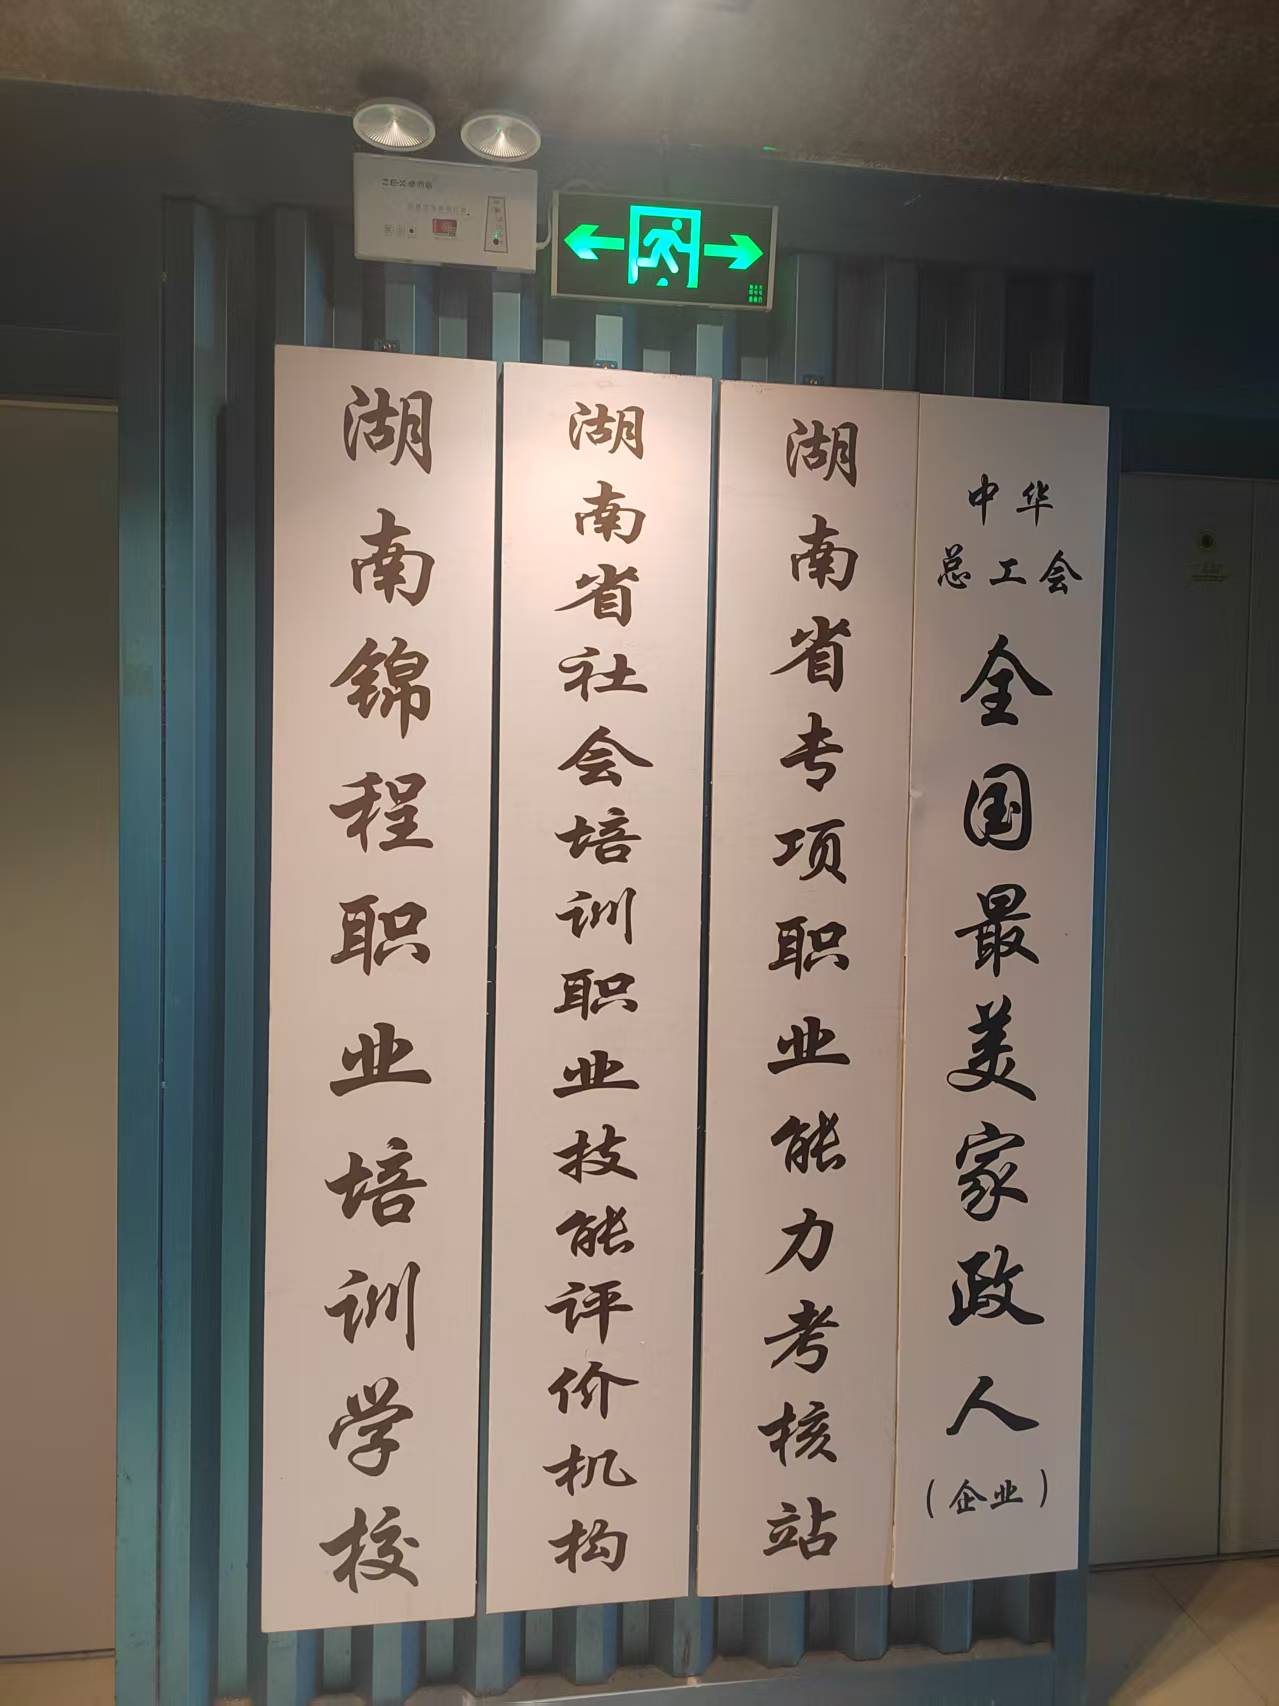 湖南锦程职业培训学校
湖南省社会培训职业技能评价机构
湖南省专项职业能力考核站
中华
总工会
全国最美家政人
(企业)